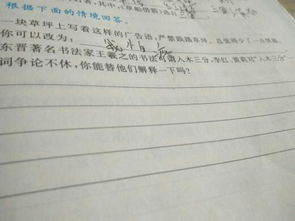 根据下面的情境回答。
一块草坪上写着这样的广告语:严禁践踏草坪,总觉得少了一点
你可以改为:
东晋著名书法家王羲之的书法可谓入木三分,李红,黄莉对“入木三分”
词争论不休,你能替他们解释一下吗?